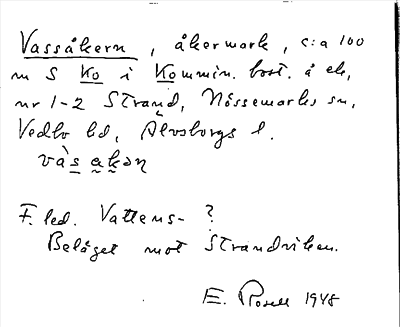 Vassåkern, åkermark, c:a 100
m S Ko i Kommin. bost. å ek,
nr 1-2 Strand, Nössemarks sn,
Vedbo hd, Älvsborgs l.
vàs akən
F. led. Vattens- ?
Beläget mot Strandviken.
E. Rosell 1948